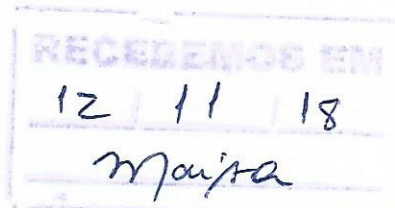 RECEBEMOS EM
12 / 11 / 18
Maisa